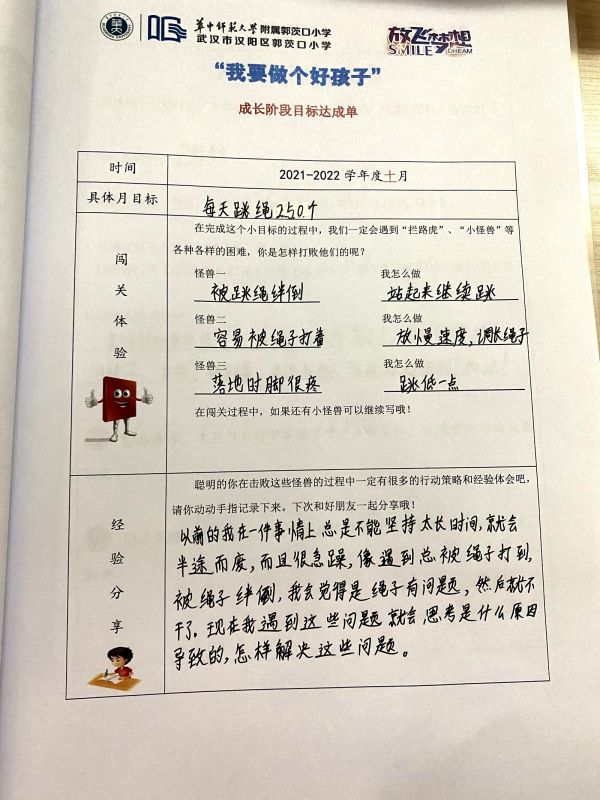 华中师范大学附属郭茨口小学
武汉市汉阳区郭茨口小学
放飞梦想
SMILE DREAM
“我要做个好孩子”
成长阶段目标达成单
时间
2021-2022 学年度十月
具体月目标
每天跳绳250个
闯关体验
在完成这个小目标的过程中，我们一定会遇到“拦路虎”、“小怪兽”等
各种各样的困难，你是怎样打败他们的呢？
怪兽一 我怎么做
被跳绳绊倒 站起来继续跳
怪兽二 我怎么做
容易被绳子打着 放慢速度，调长绳子
怪兽三 我怎么做
落地时脚很疼 跳低一点
在闯关过程中，如果还有小怪兽可以继续写哦！
经验分享
聪明的你在击败这些怪兽的过程中一定有很多的行动策略和经验体会吧，
请你动动手指记录下来。下次和好朋友一起分享哦！
以前的我在一件事情上总是不能坚持太长时间，就会
半途而废，而且很急躁，像遇到总被绳子打到，
被绳子绊倒，我会觉得是绳子有问题，然后就不
干了。现在我遇到这些问题就会思考是什么原因
导致的，怎样解决这些问题。